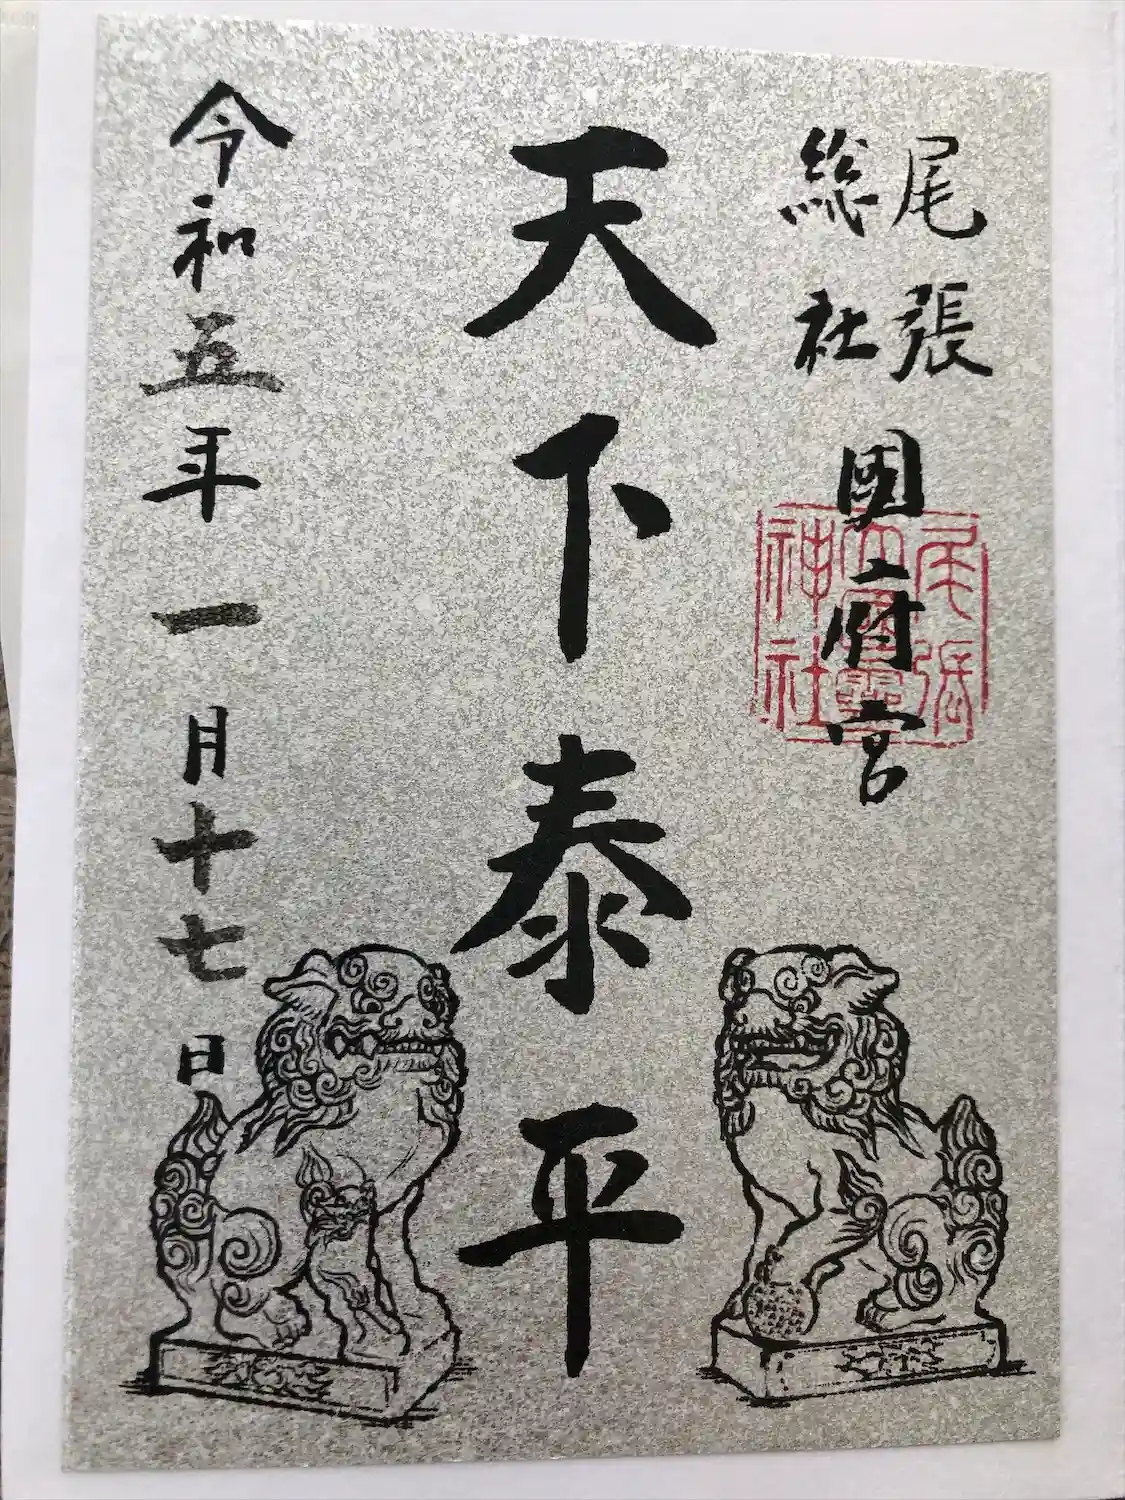 尾張
総社
國府宮
尾張
神社
天下泰平
令和五年一月十七日